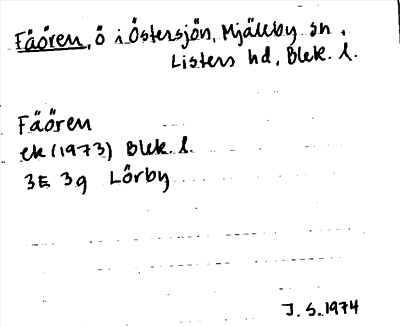 Fäören, ö i Östersjön, Mjällby sn,
Listers hd, Blek. l.
Fäören
ek (1973) Blek. l.
3E 3g Lörby
J. S. 1974